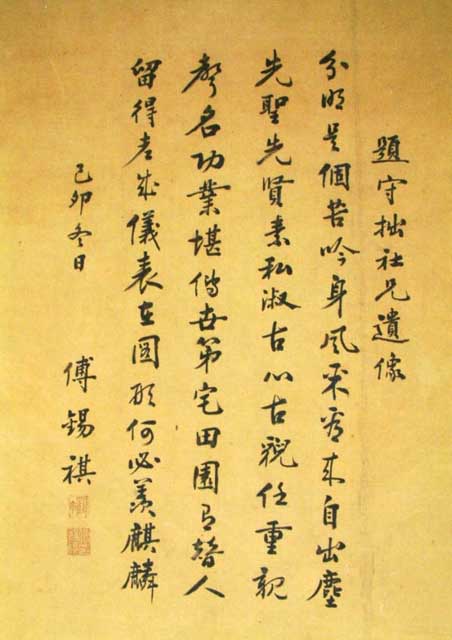 題守拙社兄遺像
分明是個苦吟身風采看來自出塵
先聖先賢素私淑古心古貌任重親
聲名功業堪傳世第宅田園有替人
留得老成儀表在圖形何必羨麒麟
己卯冬日
傅錫祺